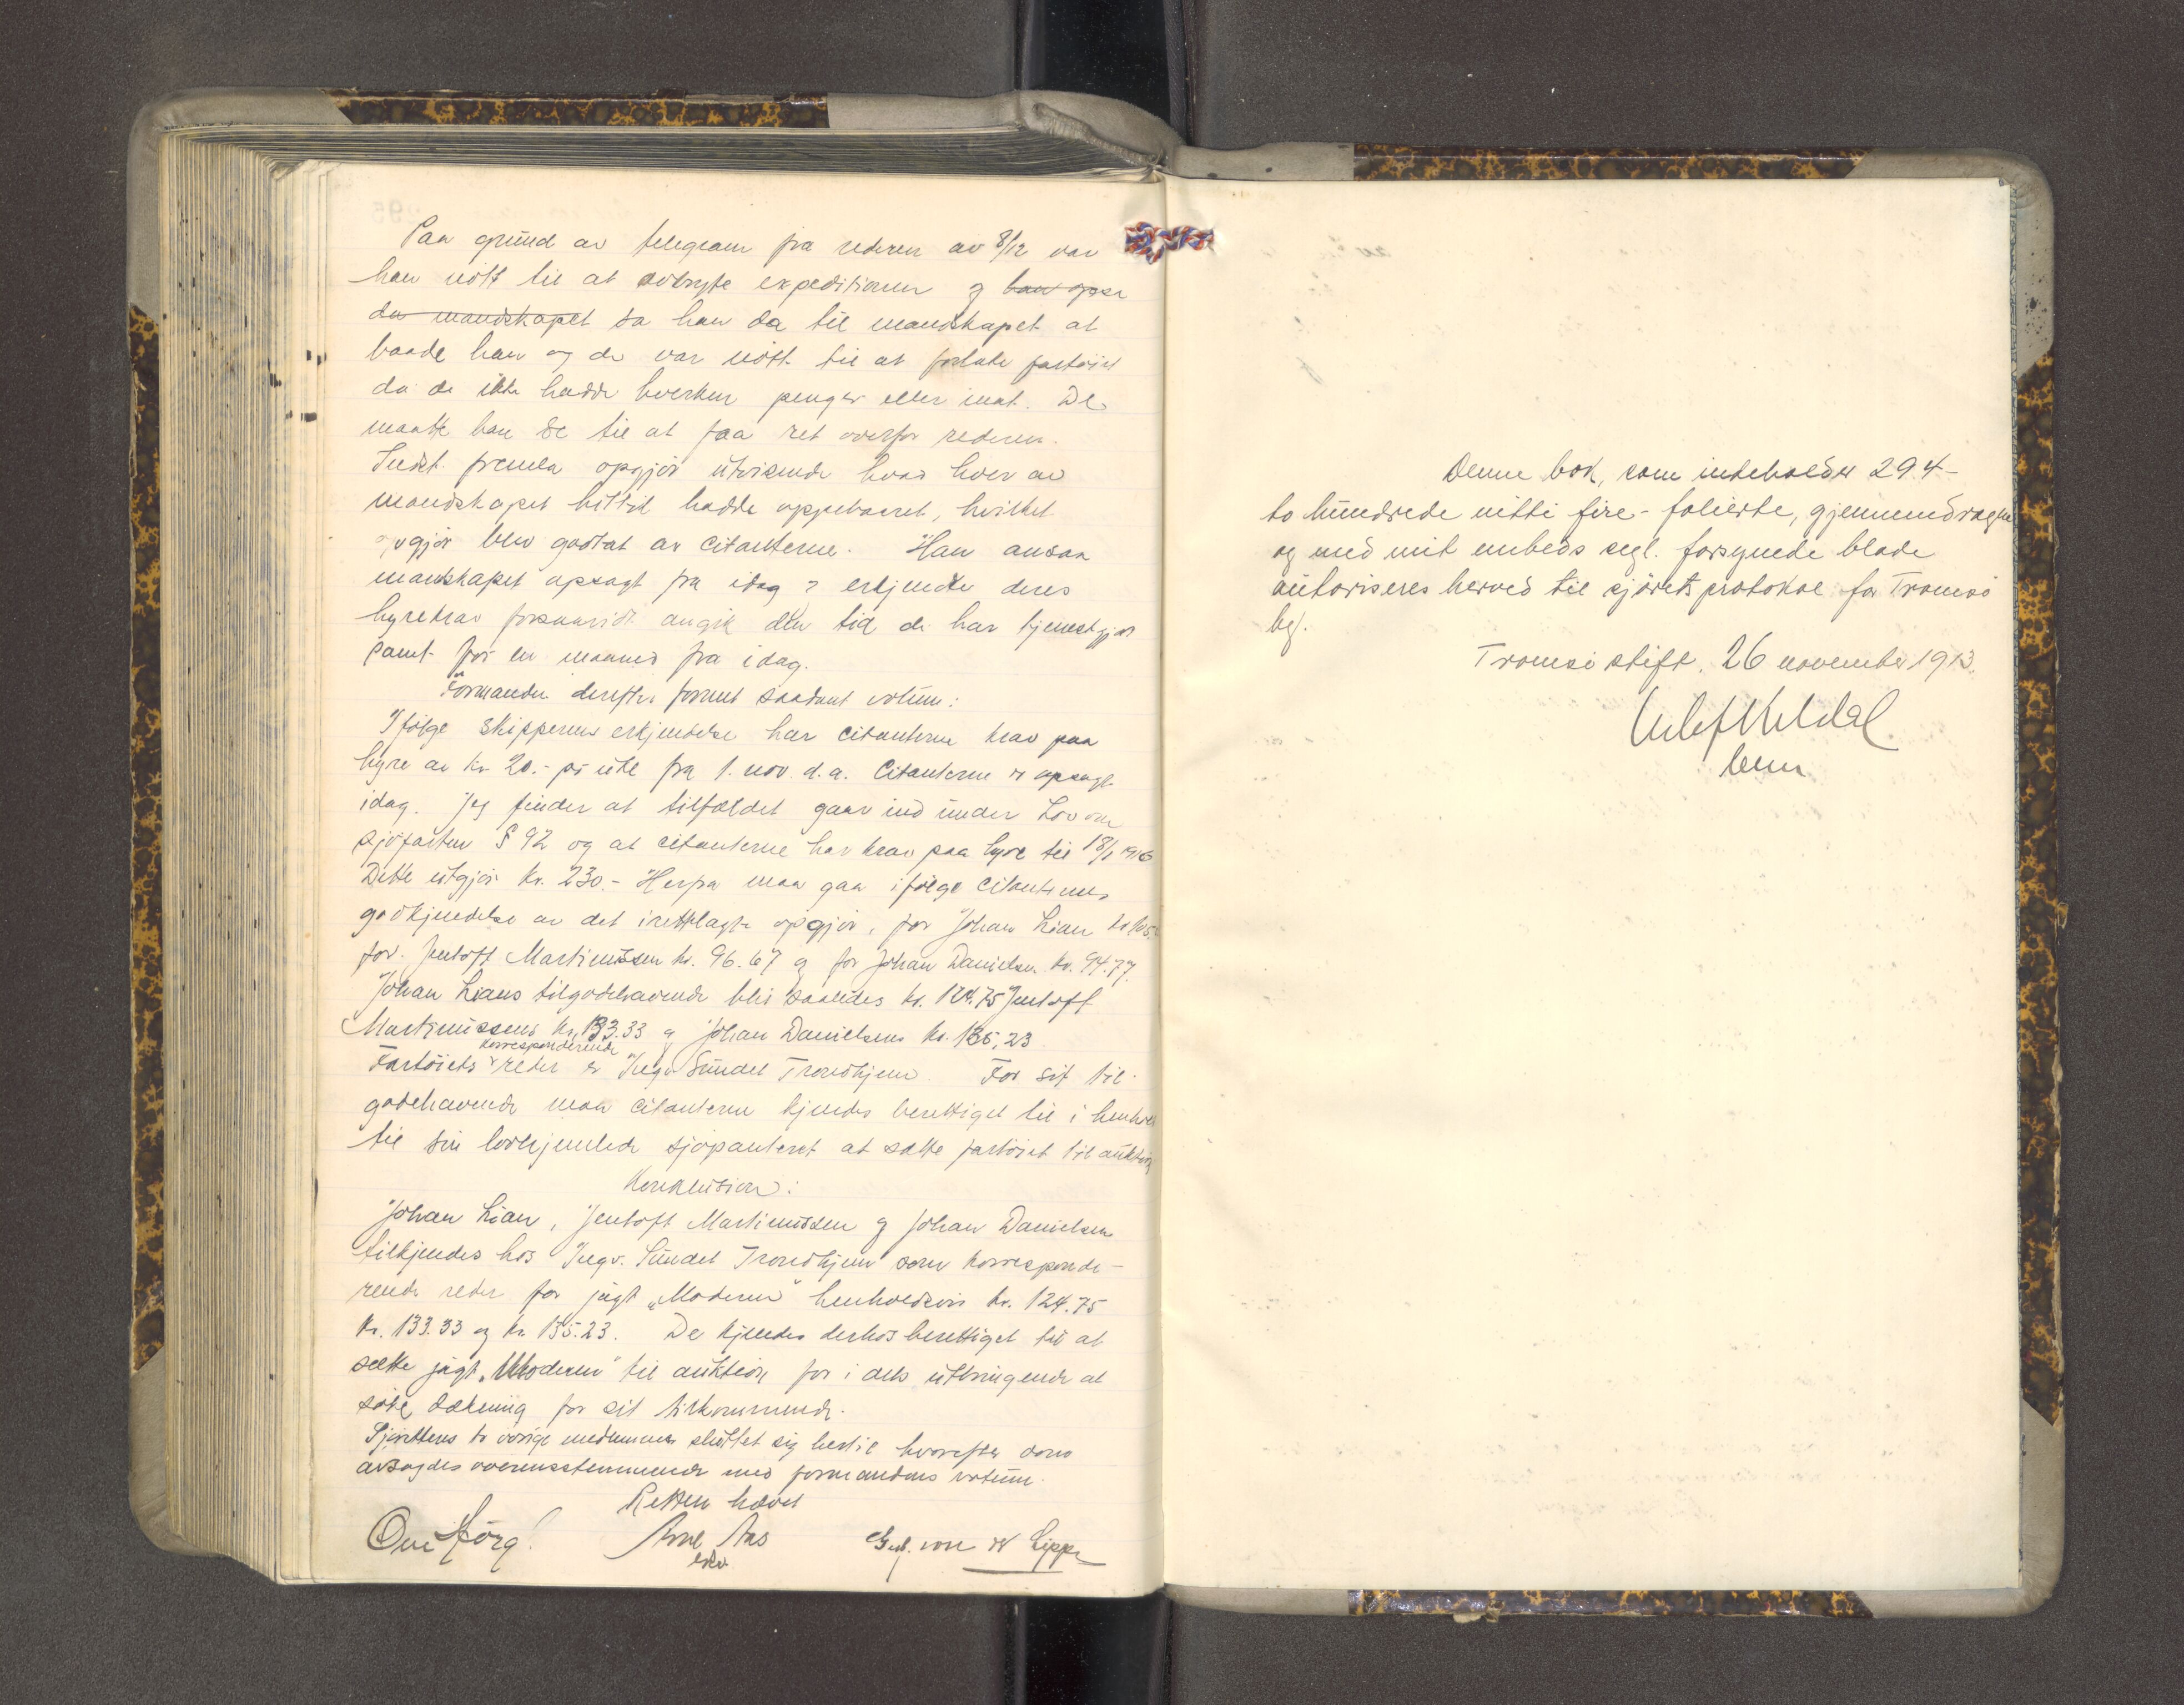 Paa grund av telegram fra rederen av 8/12 var
han nött til at avbryte expeditionen og han opsa
de mandskapet sa han da til mandskapet at
baade han og de var nött til at forlate fartöiet
da de ikke hadde hverken penger eller mat. De
maatte han se til at faa ret overfor rederen.
Indst. fremla opgjör utvisende hvad hver av
mandskapet hittil hadde oppebaaret, hvilket
opgjör blev godtat av citanterne. Han ansaa
mandskapet opsagt fra idag og erkjendte deres
hyrekrav forsaavidt angik den tid de har tjenestgjort
samt for en maaned fra idag.
Formanden derefter fremla saadant votum:
Ifölge skipperens erkjendelse har citanterne krav paa
hyre av kr 20.- pr uke fra 1. nov. d.a. Citanterne er opsagt
idag. Jeg finder at tilfældet gaar ind under Lov om
sjöfarten § 92 og at citanterne har krav paa hyre til 18/1 1916
Dette utgjör kr. 230.- Herfra maa gaa ifölge citanternes
godkjendelse av det irettelagte opgjör, for Johan Lian kr 105.
for Jentoft Martinussen kr. 96.67 og for Johan Danielsen kr. 94.77.
Johan Lians tilgodehavende blir saaledes kr. 124.75 Jentoft
Martinussens kr. 133.33 og Johan Danielsens kr. 135,23
korresponderende
Fartöiets reder er Ingv. Sundet Trondhjem. For sit til-
godehavende maa citanterne kjendes berettiget til i henhold
til sin lovhjemlede sjöpanteret at sætte fartöiet til auktion
Konklusion:
Johan Lian, Jentoft Martinussen og Johan Danielsen
tilkjendes hos Ingv. Sundet Trondhjem som korresponde-
rende reder for jagt "Modern" henholdsvis kr. 124.75
kr. 133.33 og kr. 135.23. De kjendes derhos berettiget til at
sætte jagt "Modern" til auktion for i dets utbringende at
söke dækning for sit tilkommende.
Sjörettens to övrige medlemmer sluttet sig hertil hvorefter dom
avsagdes overensstemmende med formandens votum.
Retten hævet
Arne Aas
von d Lippe
Denne bok, som indeholder 294-
to hundrede nitti fire - folierte, gjennemdragne
og med mit embeds segl. forsynede blade
autoriseres herved til sjörets protokol for Tromsö
by.
Tromsö stift. 26 november 1913.